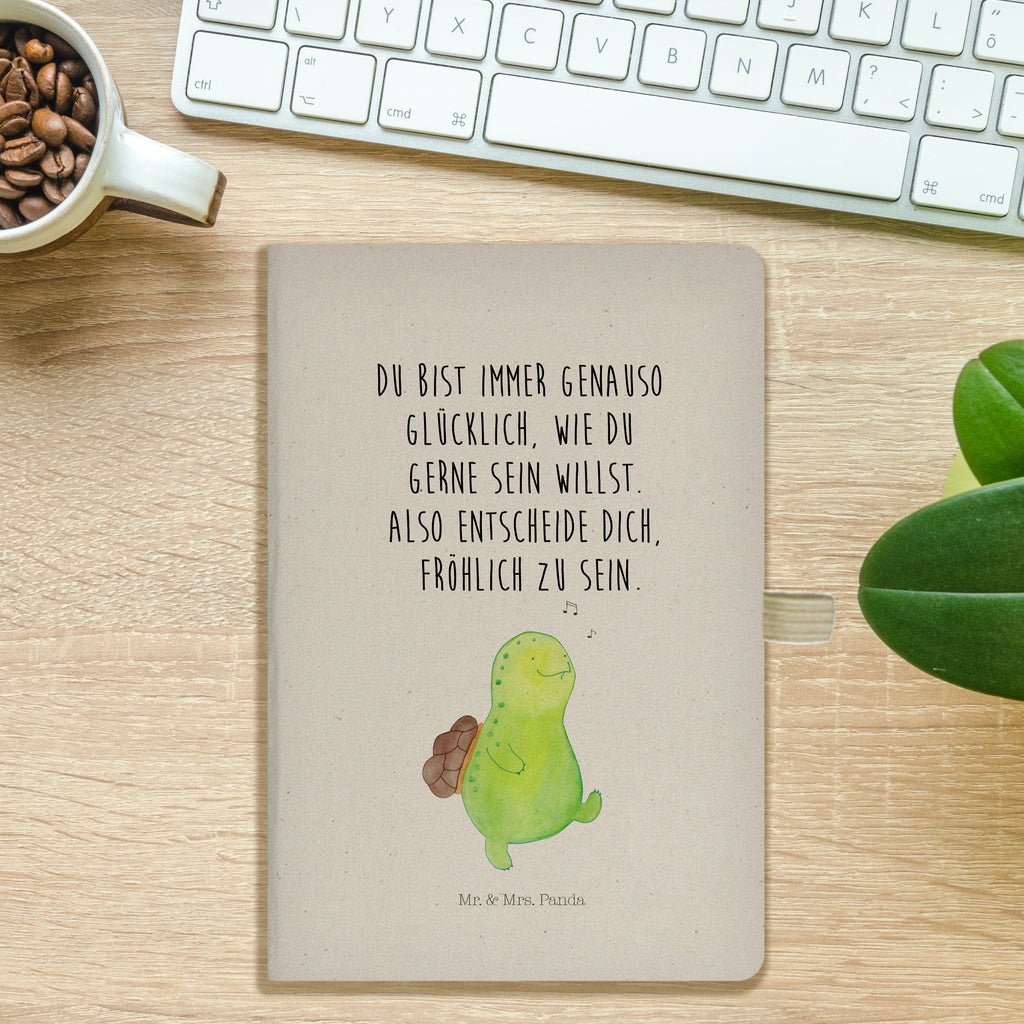 Y X C V B N M J K L
alt
ctrl
cmd ⌘
? <
: >
⌘ cmd
DU BIST IMMER GENAUSO
GLÜCKLICH, WIE DU
GERNE SEIN WILLST.
ALSO ENTSCHEIDE DICH,
FRÖHLICH ZU SEIN.
Mr. & Mrs. Panda